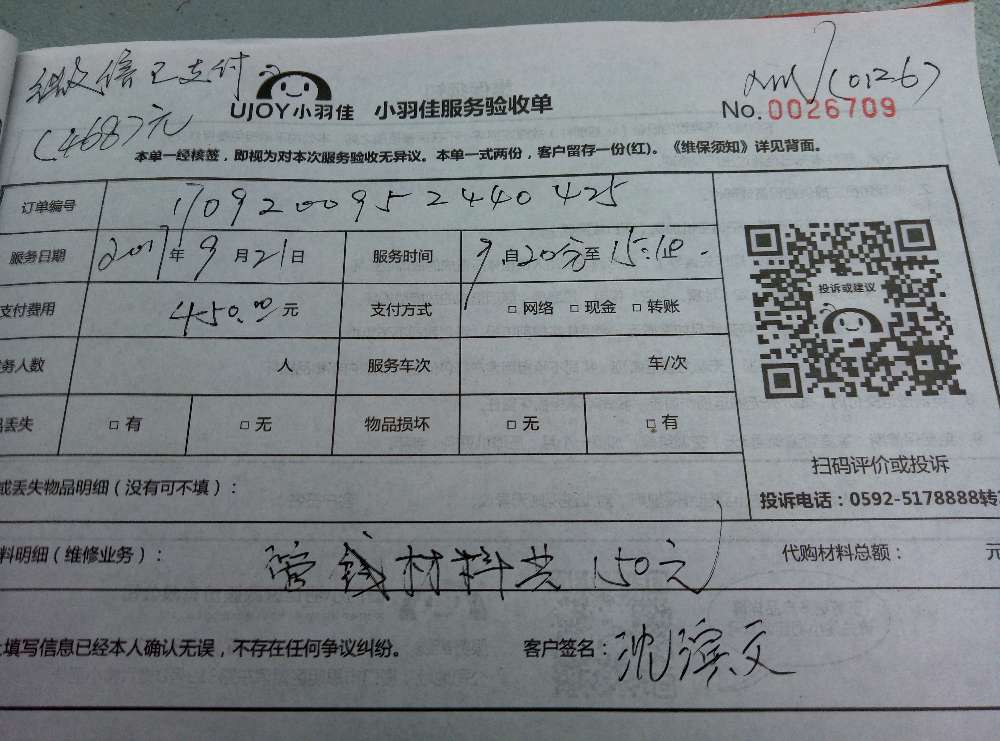 微信已支付
(468)元
UJOY小羽佳 小羽佳服务验收单
(0126)
No.0026709
本单一经核签，即视为对本次服务验收无异议。本单一式两份，客户留存一份(红)。《维保须知》详见背面。
订单编号 1709200952440425
服务日期 2017年9月21日 服务时间 自 至15:
支付费用 450.00元 支付方式 □网络 □现金 □转账
务人数 人 服务车次 车/次
丢失 □有 □无 物品损坏 □无 □有
投诉或建议
扫码评价或投诉
投诉电话：0592-5178888转
或丢失物品明细（没有可不填）：
料明细（维修业务）： 材料共150元 代购材料总额： 元
填写信息已经本人确认无误，不存在任何争议纠纷。 客户签名：沈滨文